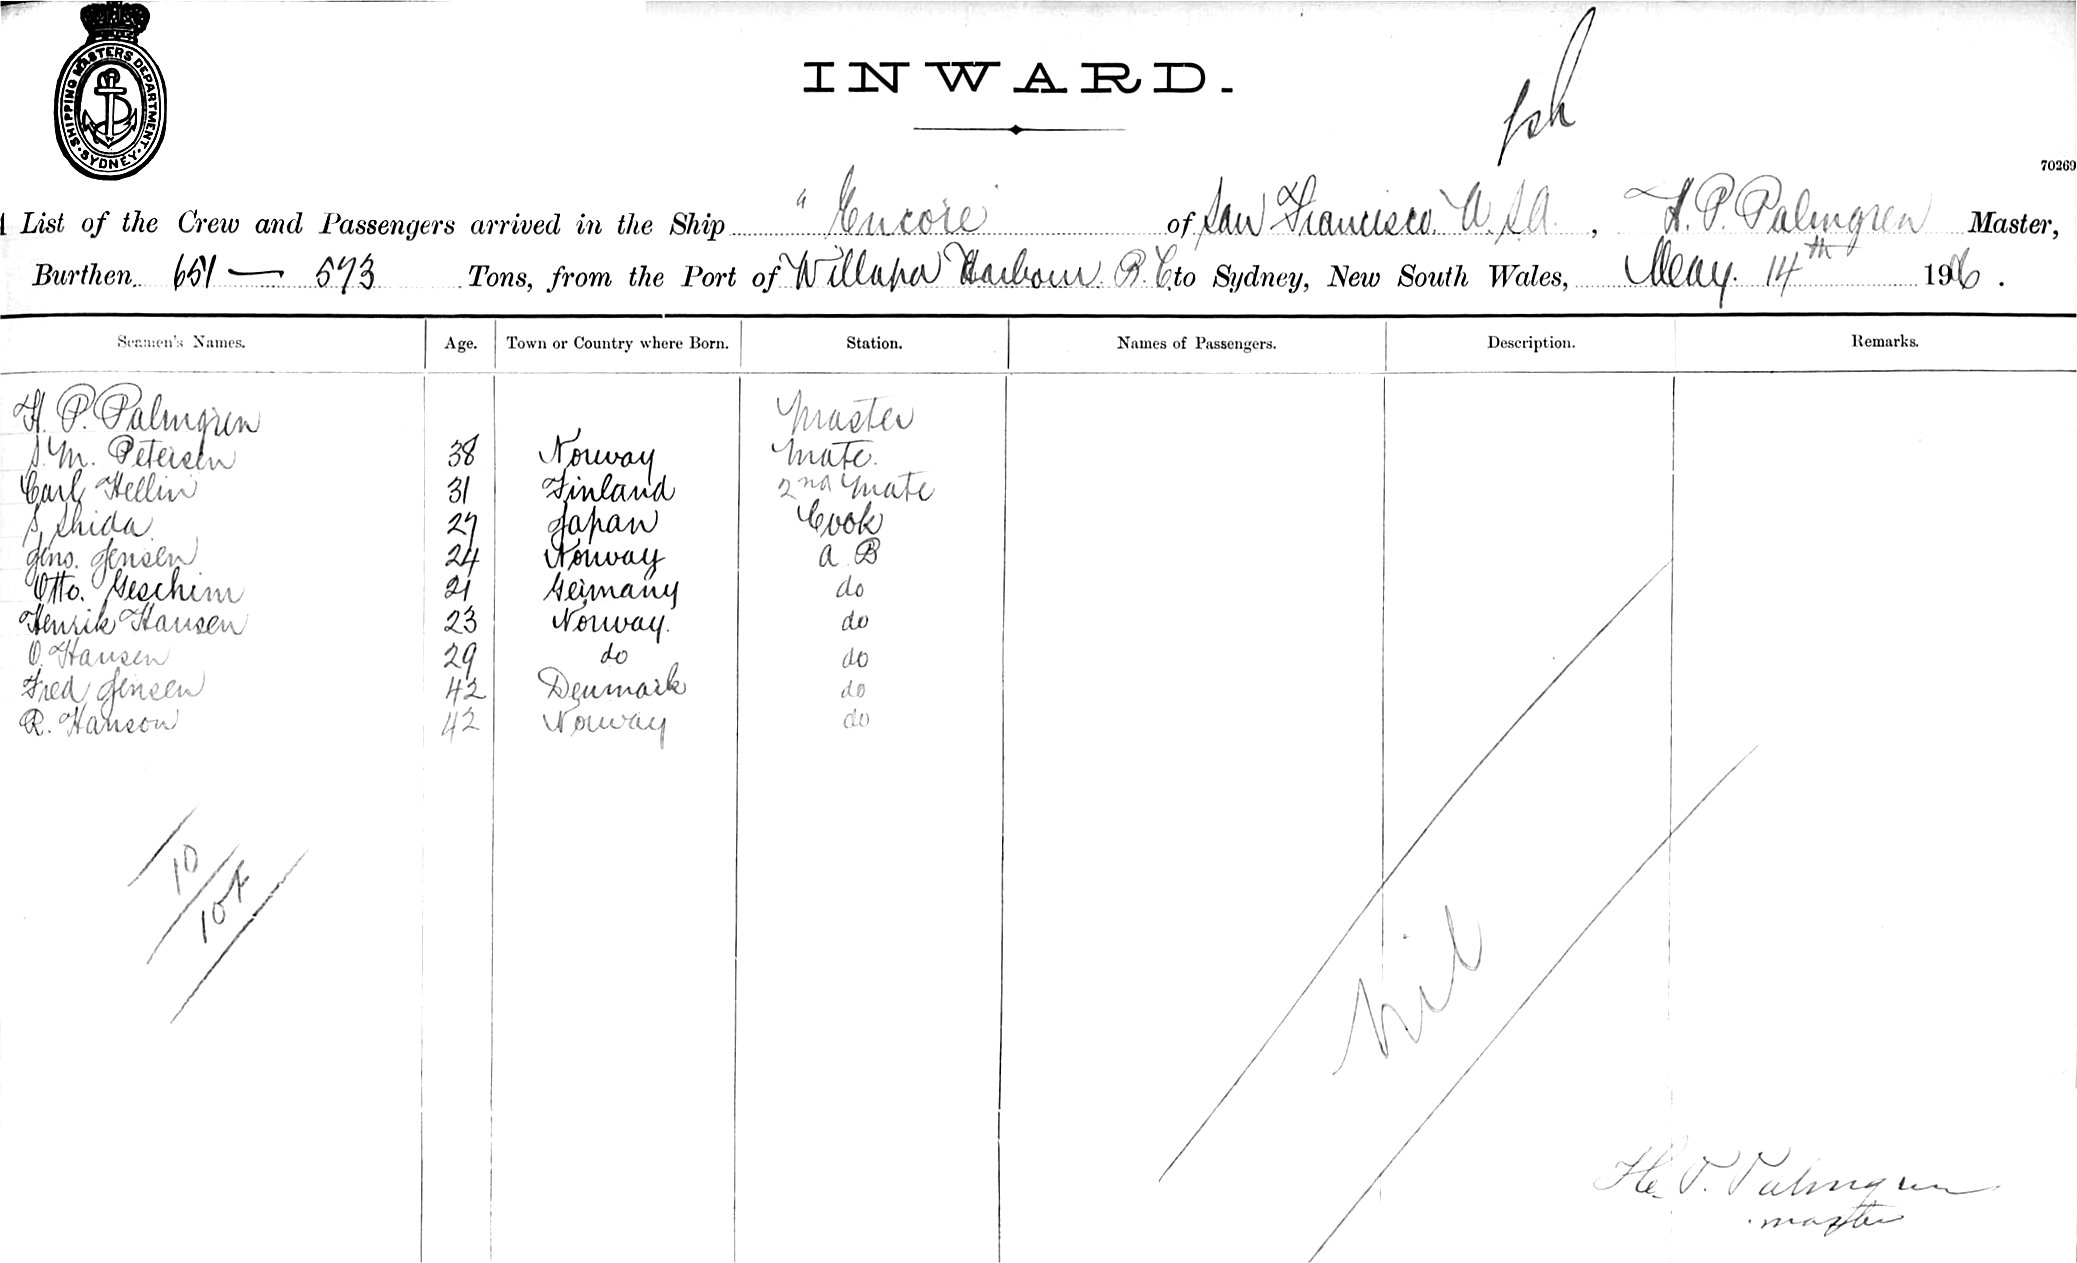 SHIPPING MASTERS DEPARTMENT
SYDNEY
INWARD.
70269
List of the Crew and Passengers arrived in the Ship "Encore" of San Francisco U.S.A., H. P. Palmgren Master,
Burthen 651 — 573 Tons, from the Port of Willapa Harbour B.C. to Sydney, New South Wales, May. 14th 1906.
Seamen's Names. Age. Town or Country where Born. Station. Names of Passengers. Description. Remarks.
H. P. Palmgren Master
S. M. Petersen 38 Norway Mate.
Carl Hellin 31 Finland 2nd Mate
S. Shida 27 Japan Cook
Jens. Jensen 24 Norway A B
Otto. Geschim 21 Germany do
Henrik Hansen 23 Norway. do
O. Hansen 29 do do
Fred Jensen 42 Denmark do
R. Hanson 42 Norway do
10
nil
H. P. Palmgren
master